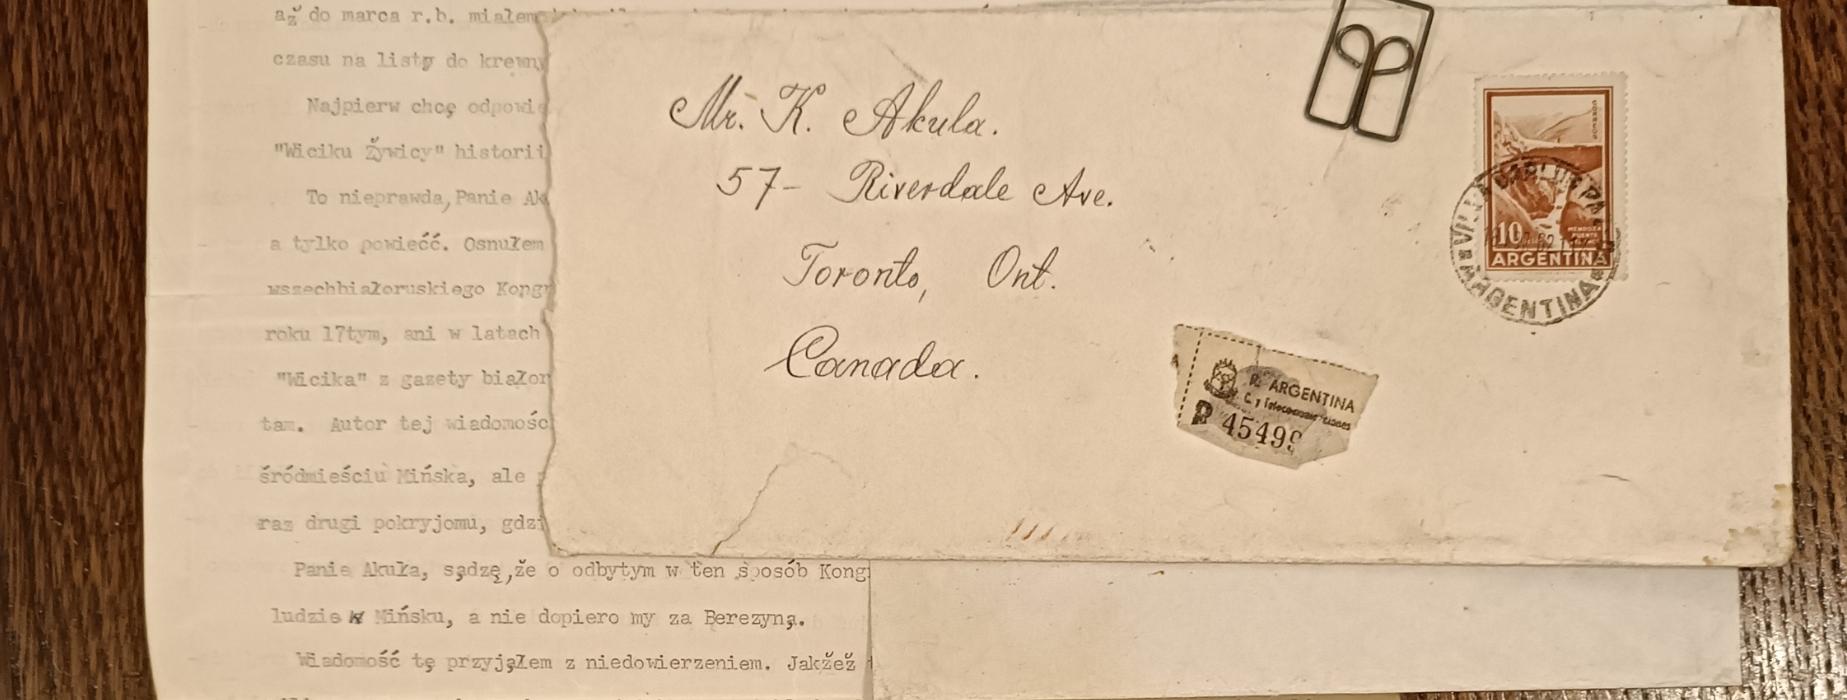 aż do marca r.b. miałem
czasu na listy do krewny
Najpierw chcę odpowie
"Wiciku Żywicy" historii
To nieprawda, Panie Ak
a tylko powieść. Osnułem
wszechbiałoruskiego Kongr
roku 17tym, ani w latach
"Wicika" z gazety białor
tam. Autor tej wiadomośc
śródmieściu Mińska, ale
raz drugi pokryjomu, gdzi
Panie Akuła, sądzę, że o odbytym w ten sposób Kong
ludzie w Mińsku, a nie dopiero my za Berezyną.
Wiadomość tę przyjąłem z niedowierzeniem. Jakżeż
Mr. K. Akula.
57- Riverdale Ave.
Toronto, Ont.
Canada.
10 MENDOZA
PUENTE
ARGENTINA
ARGENTINA
R. ARGENTINA
C. y Telecomunicaciones
R 45499